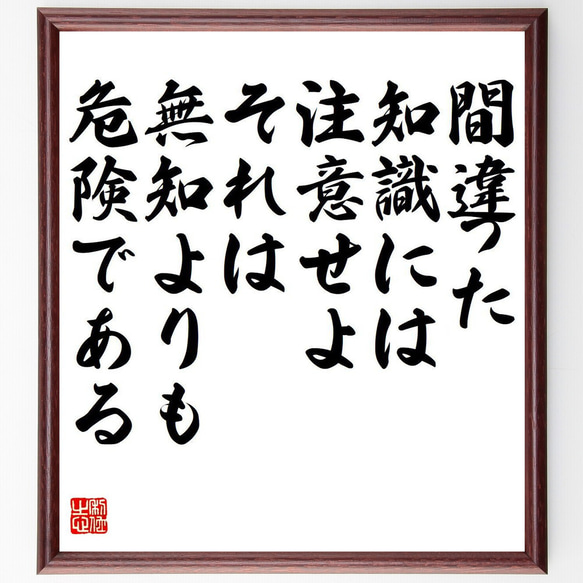 間違った
知識には
注意せよ
それは
無知よりも
危険である